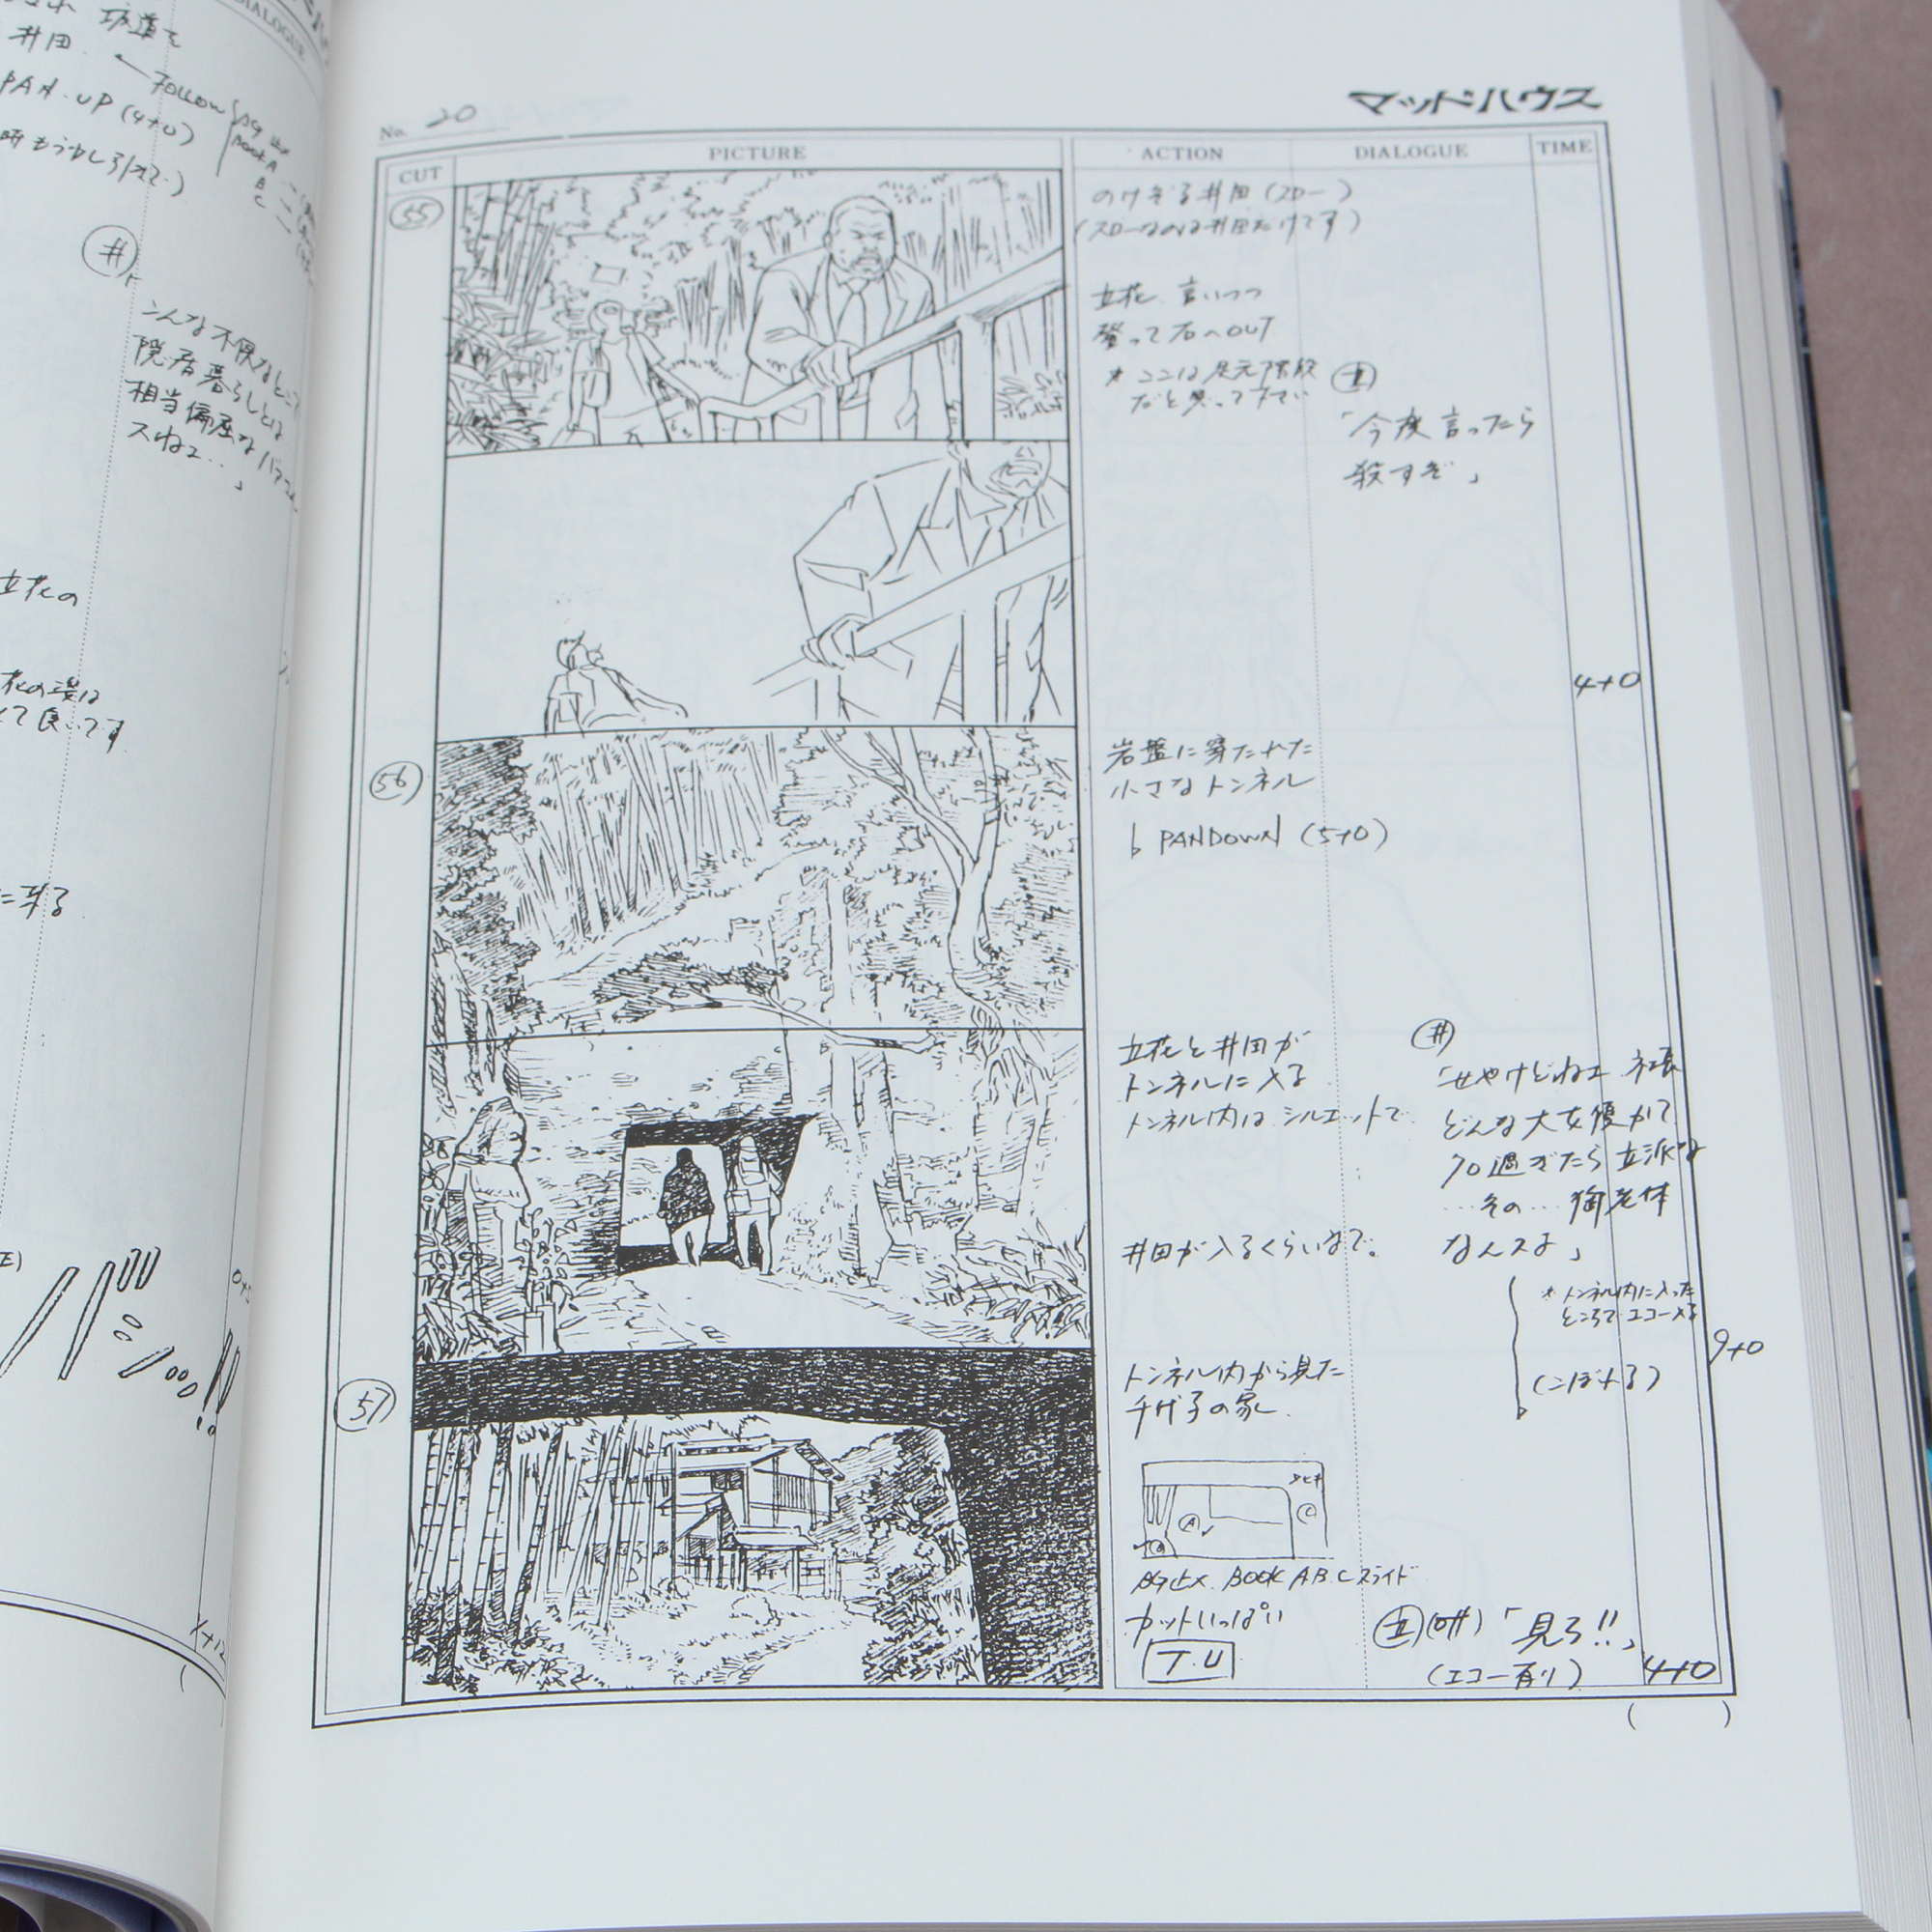 DIALOGUE
坂道を
井田
FOLLOW
PAN.UP (4+0)
BOOK A
B
C
井
こんな不便なところで
隠居暮らしとは
相当偏屈な
スねェ…」
立花の
て良いです
に来る
バシ…!!
1+12
マッドハウス
No. 20
CUT
PICTURE
ACTION
DIALOGUE
TIME
55
のけぞる井田(スロー)
(スローなのは井田だけです)
立花、言いつつ
登って右へOUT
* ここは足元階段
だと思って下さい
立
「今度言ったら
殺すぞ」
4+0
56
岩盤に穿たれた
小さなトンネル
PANDOWN (5+0)
立花と井田が
トンネルに入る
トンネル内はシルエットで
井
「せやけどねェ 社長
どんな大女優かて
70過ぎたら立派な
…その…御老体
なんスよ」
井田が入るくらいまで。
* トンネル内に入った
ところでエコー入る
(こぼれる)
9+0
57
トンネル内から見た
千代子の家
A
C
BG止メ. BOOK A B C スライド
カットいっぱい
T.U
立 (OFF) 「見ろ!!」
(エコー有り)
4+0
( )